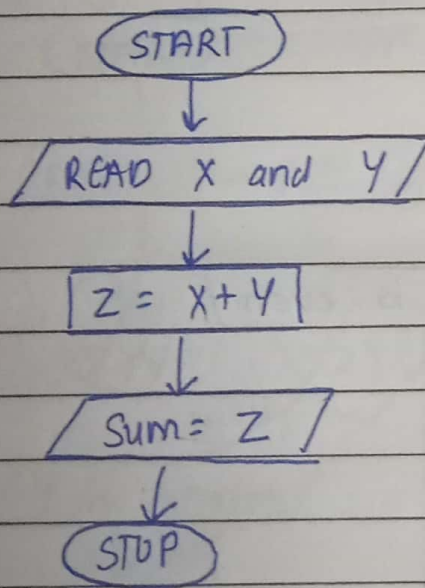 START
READ X and Y
Z = X+Y
Sum= Z
STOP